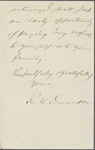 return I shall find
an early opportunity
of paying my respects
to yourself & to your
family,
Respectfully & gratefully
Yours,
R. W. Emerson